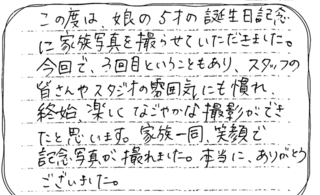 この度は、娘の5才の誕生日記念
に家族写真を撮らせていただきました。
今回で、3回目ということもあり、スタッフの
皆さんやスタジオの雰囲気にも慣れ、
終始、楽しくなごやかな撮影ができ
たと思います。家族一同、笑顔で
記念写真が撮れました。本当に、ありがとう
ございました。